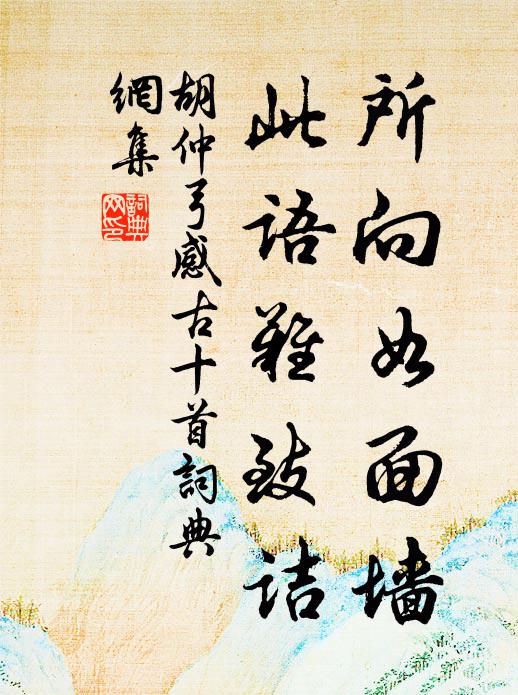 所向如面墙
此语難致詰
胡仲弓感古十首詞典
網集
詞典
网印